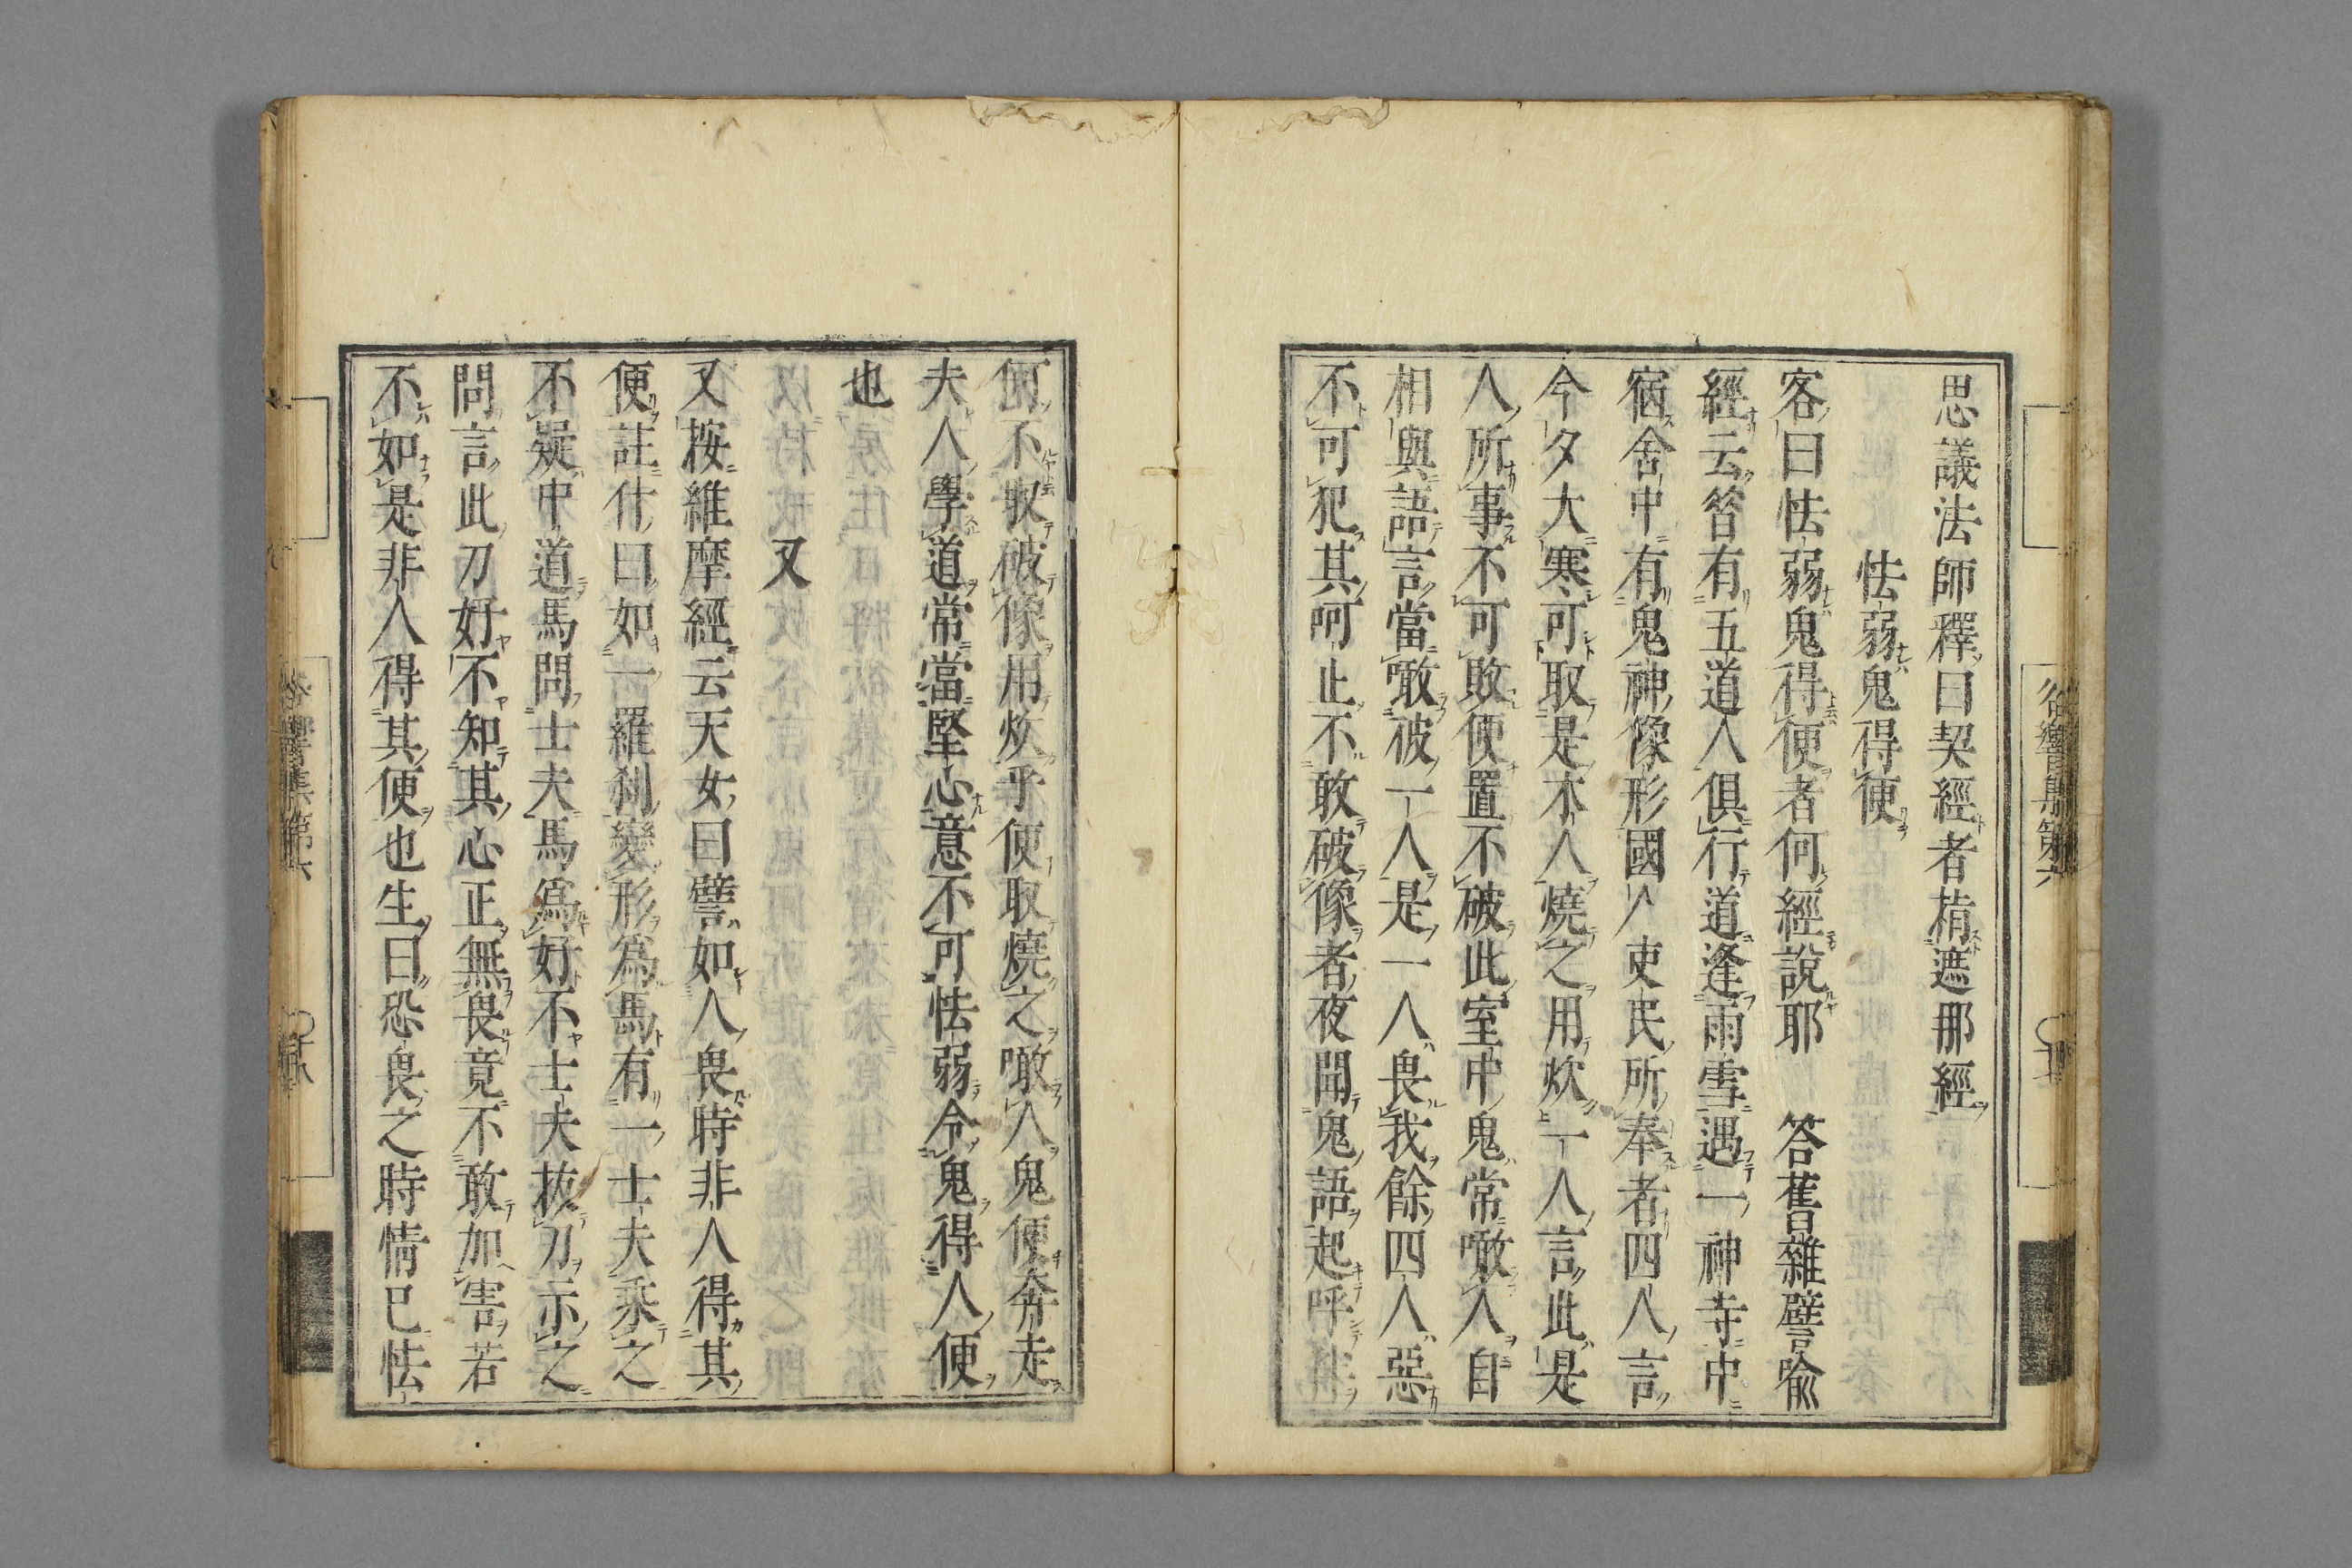 思議法師釋曰契經者楷遮那經
怯弱鬼得便
客曰怯弱鬼得便者何經說耶 答舊雜譬喻
經云昔有五道人俱行道逢雨雪遇一神寺中
宿舍中有鬼神像形國人吏民所奉者四人言
今夕大寒可取是木人燒之用炊一人言此是
人所事不可敗便置不破此室中鬼常噉人自
相與語言當噉彼一人是一人畏我餘四人惡
不可犯其呵止不敢破像者夜聞鬼語起呼
何不取破像用炊乎便取燒之噉人鬼便奔走
夫人學道常當堅心意不可怯弱令鬼得人便
也
又
又按維摩經云天女曰譬如人畏時非人得其
便註什曰如一羅刹變形為馬有一士夫乘之
不疑中道馬問士夫馬為好不士夫拔刀示之
問言此刀好不知其心正無畏竟不敢加害若
不如是非人得其便也生曰恐畏之時情已怯
谷響集第六
谷響集第六